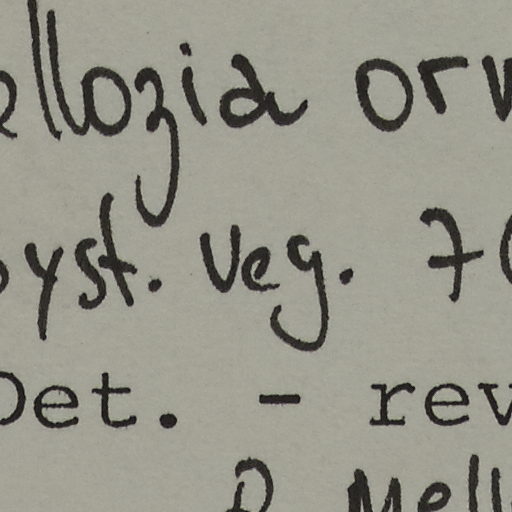 ellozia orv
Syst. Veg. 70
Det. - rev
R. Mell